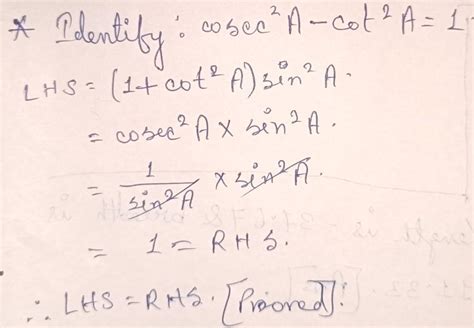 * Identify : cosec² A - cot² A = 1
LHS = (1 + cot² A) sin² A.
= cosec² A × sin² A.
= 1/sin² A × sin² A.
= 1 = RHS.
∴ LHS = RHS. [Prooved]!